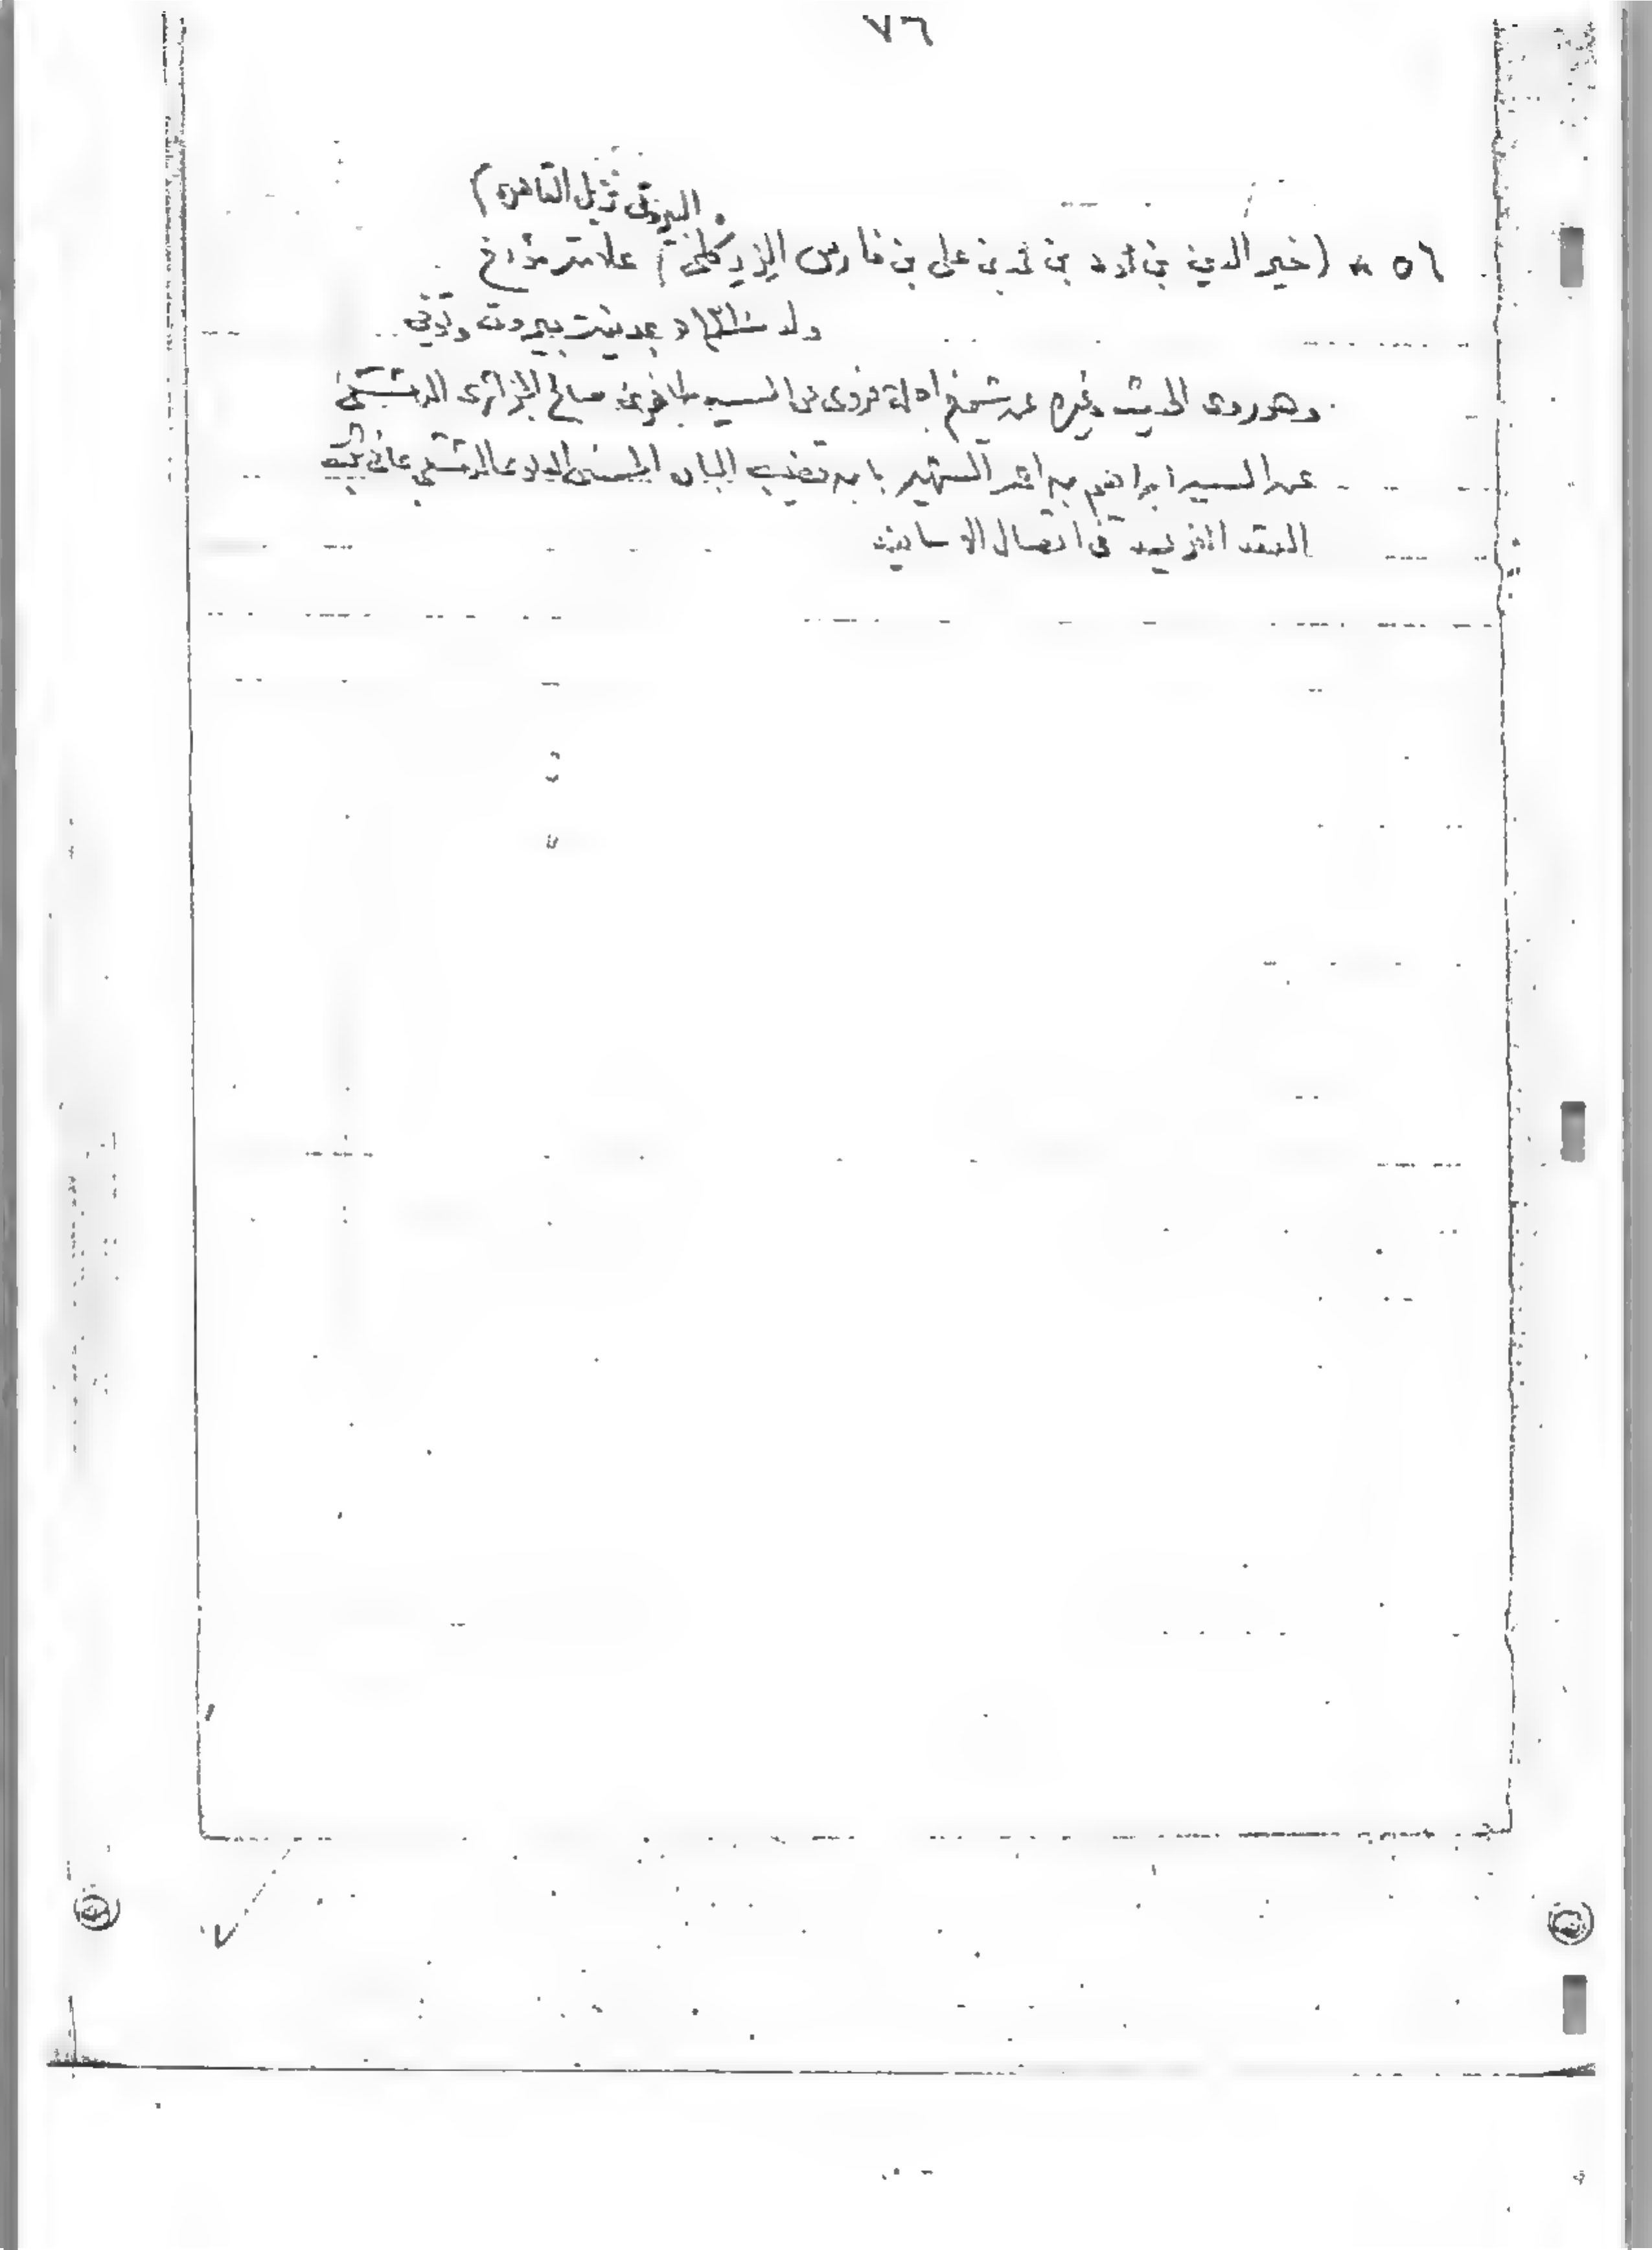 ٧٦
البيروتي نزيل القاهرة)
٥٦ * (خير الدين بن محمود بن محمد بن علي بن فارس الزركلي) علامة مؤرخ
ولد بمدينة بيروت وتوفي
وهو روى الحديث وغيره عن شيوخ فروى عن السيد صالح الجزائري الدمشقي
عن السيد ابراهيم بن الشهير بابن قضيب البان الحسني الدمشقي في
العقد الفريد في اتصال الاسانيد